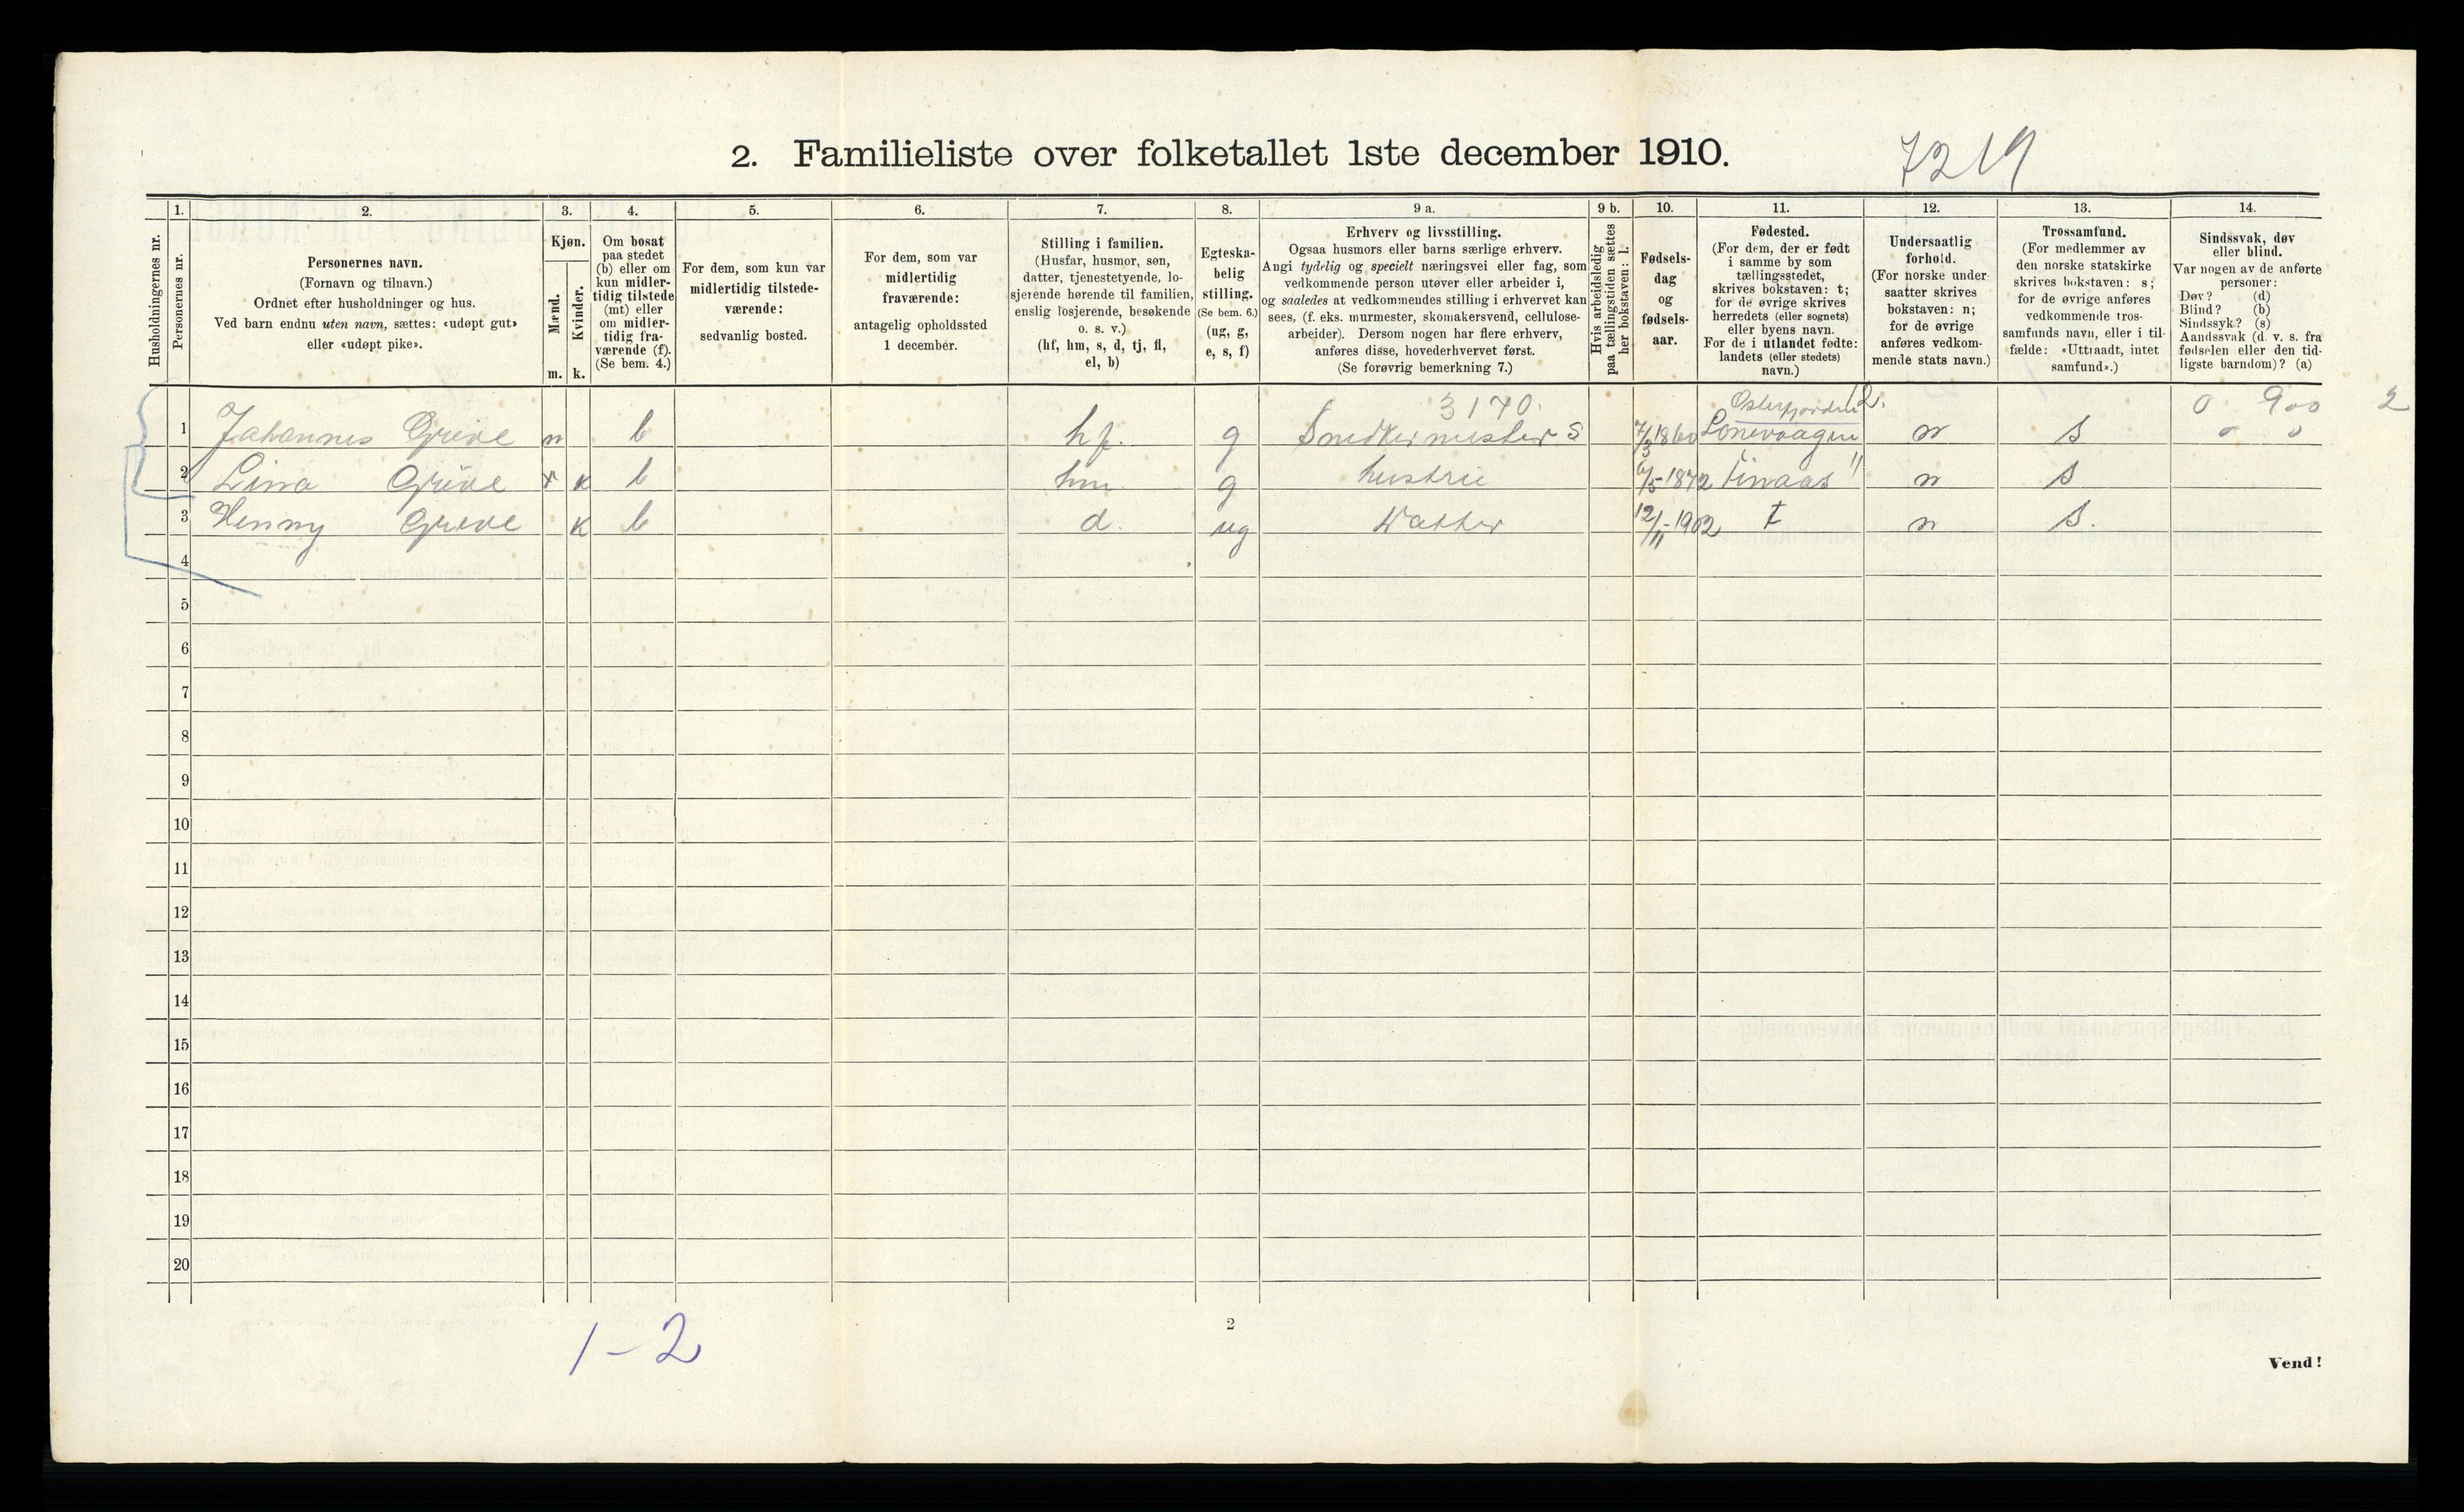 2. Familieliste over folketallet 1ste december 1910.
7219
1. 2. 3. 4. 5. 6. 7. 8. 9 a. 9 b. 10. 11. 12. 13. 14.
Husholdningernes nr.
Personernes nr.
Personernes navn.
(Fornavn og tilnavn.)
Ordnet efter husholdninger og hus.
Ved barn endnu uten navn, sættes: «udøpt gut»
eller «udøpt pike».
Kjøn.
Mænd.
Kvinder.
m. k.
Om bosat
paa stedet
(b) eller om
kun midler-
tidig tilstede
(mt) eller
om midler-
tidig fra-
værende (f).
(Se bem. 4.)
For dem, som kun var
midlertidig tilstede-
værende:
sedvanlig bosted.
For dem, som var
midlertidig
fraværende:
antagelig opholdssted
1 december.
Stilling i familien.
(Husfar, husmor, søn,
datter, tjenestetyende, lo-
sjerende hørende til familien,
enslig losjerende, besøkende
o. s. v.)
(hf, hm, s, d, tj, fl,
el, b)
Egteska-
belig
stilling.
(Se bem. 6.)
(ug, g,
e, s, f)
Erhverv og livsstilling.
Ogsaa husmors eller barns særlige erhverv.
Angi tydelig og specielt næringsvei eller fag, som
vedkommende person utøver eller arbeider i,
og saaledes at vedkommendes stilling i erhvervet kan
sees, (f. eks. murmester, skomakersvend, cellulose-
arbeider). Dersom nogen har flere erhverv,
anføres disse, hovederhvervet først.
(Se forøvrig bemerkning 7.)
Hvis arbeidsledig
paa tællingstiden sættes
her bokstaven: l.
Fødsels-
dag
og
fødsels-
aar.
Fødested.
(For dem, der er født
i samme by som
tællingsstedet,
skrives bokstaven: t;
for de øvrige skrives
herredets (eller sognets)
eller byens navn.
For de i utlandet fødte:
landets (eller stedets)
navn.)
Undersaatlig
forhold.
(For norske under-
saatter skrives
bokstaven: n;
for de øvrige
anføres vedkom-
mende stats navn.)
Trossamfund.
(For medlemmer av
den norske statskirke
skrives bokstaven: s;
for de øvrige anføres
vedkommende tros-
samfunds navn, eller i til-
fælde: «Uttraadt, intet
samfund».)
Sindssvak, døv
eller blind.
Var nogen av de anførte
personer:
Døv? (d)
Blind? (b)
Sindssyk? (s)
Aandssvak (d. v. s. fra
fødselen eller den tid-
ligste barndom)? (a)
3170. Osterfjorden 12. 0 900 2
1 Johannes Greve m b hf. g Snedkermester S 7/3 1860 Lonevaagen n s 0 0
2 Lina Greve x k b hm g hustru 6/5-1872 " n s
3 Henny Greve k b d. ug Datter 12/11-1902 t n s.
4
5
6
7
8
9
10
11
12
13
14
15
16
17
18
19
20
1-2
2
Vend!